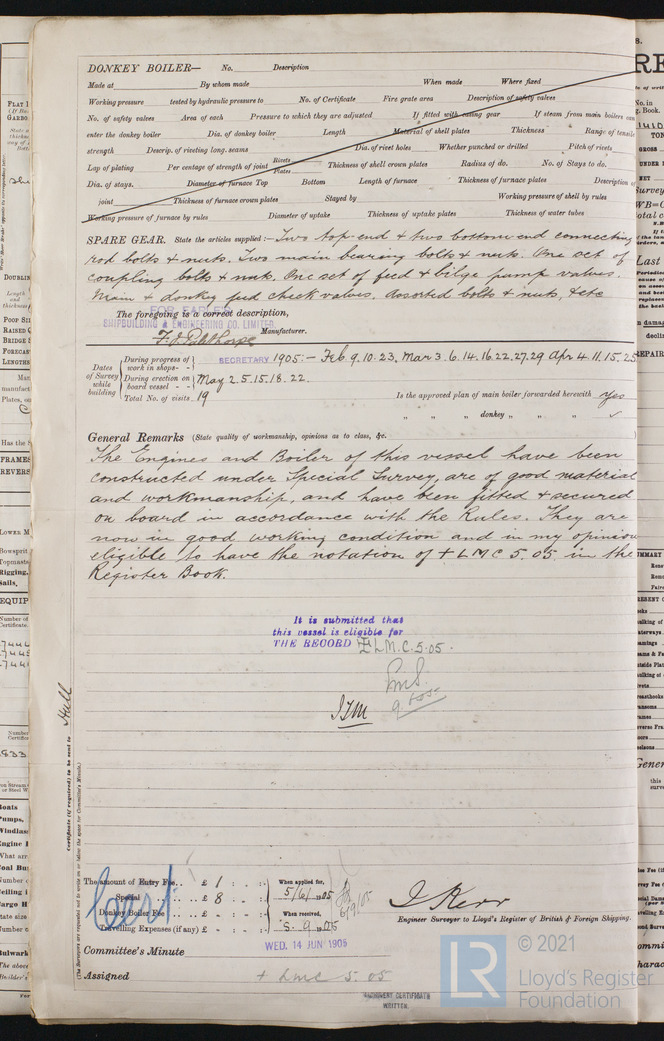 DONKEY BOILER— No. Description
Made at By whom made When made Where fixed
Working pressure tested by hydraulic pressure to No. of Certificate Fire grate area Description of safety valves
No. of safety valves Area of each Pressure to which they are adjusted If fitted with easing gear If steam from main boilers can
enter the donkey boiler Dia. of donkey boiler Length Material of shell plates Thickness Range of tensile
strength Descrip. of riveting long. seams Dia. of rivet holes Whether punched or drilled Pitch of rivets
Lap of plating Per centage of strength of joint Rivets Plates Thickness of shell crown plates Radius of do. No. of Stays to do.
Dia. of stays. Diameter of furnace Top Bottom Length of furnace Thickness of furnace plates Description of
joint Thickness of furnace crown plates Stayed by Working pressure of shell by rules
Working pressure of furnace by rules Diameter of uptake Thickness of uptake plates Thickness of water tubes
SPARE GEAR. State the articles supplied:— Two top end & two bottom end connecting
rod bolts & nuts. Two main bearing bolts & nuts. One set of
coupling bolts & nuts. One set of feed & bilge pump valves.
Main & donkey feed check valves. Assorted bolts & nuts, &etc
The foregoing is a correct description,
SHIPBUILDING & ENGINEERING CO. LIMITED.
Manufacturer.
SECRETARY
Dates of Survey while building
During progress of work in shops - - 1905:— Feb. 9. 10. 23. Mar 3. 6. 14. 16. 22. 27. 29 Apr 4. 11. 15. 25
During erection on board vessel - - - May 2. 5. 15. 18. 22.
Total No. of visits 19
Is the approved plan of main boiler forwarded herewith Yes
" " " donkey " " " ✓
General Remarks (State quality of workmanship, opinions as to class, &c.
The Engines and Boiler of this vessel have been
constructed under Special Survey, are of good material
and workmanship, and have been fitted & secured
on board in accordance with the Rules. They are
now in good working condition and in my opinion
eligible to have the notation of + LMC 5.05 in the
Register Book.
It is submitted that
this vessel is eligible for
THE RECORD + L.M.C. 5.05.
Certificate (if required) to be sent to Hull
(The Surveyors are requested not to write on or below the space for Committee's Minute.)
The amount of Entry Fee.. £ 1 : :
Special £ 8 : :
Donkey Boiler Fee £ - : :
Travelling Expenses (if any) £ - : :
When applied for,
5/6/1905
When received,
5. 9. 1905
J Kerr
Engineer Surveyor to Lloyd's Register of British & Foreign Shipping.
Committee's Minute WED. 14 JUN 1905
Assigned + LMC 5.05
MACHINERY CERTIFICATE
WRITTEN.
LR
© 2021
Lloyd's Register
Foundation